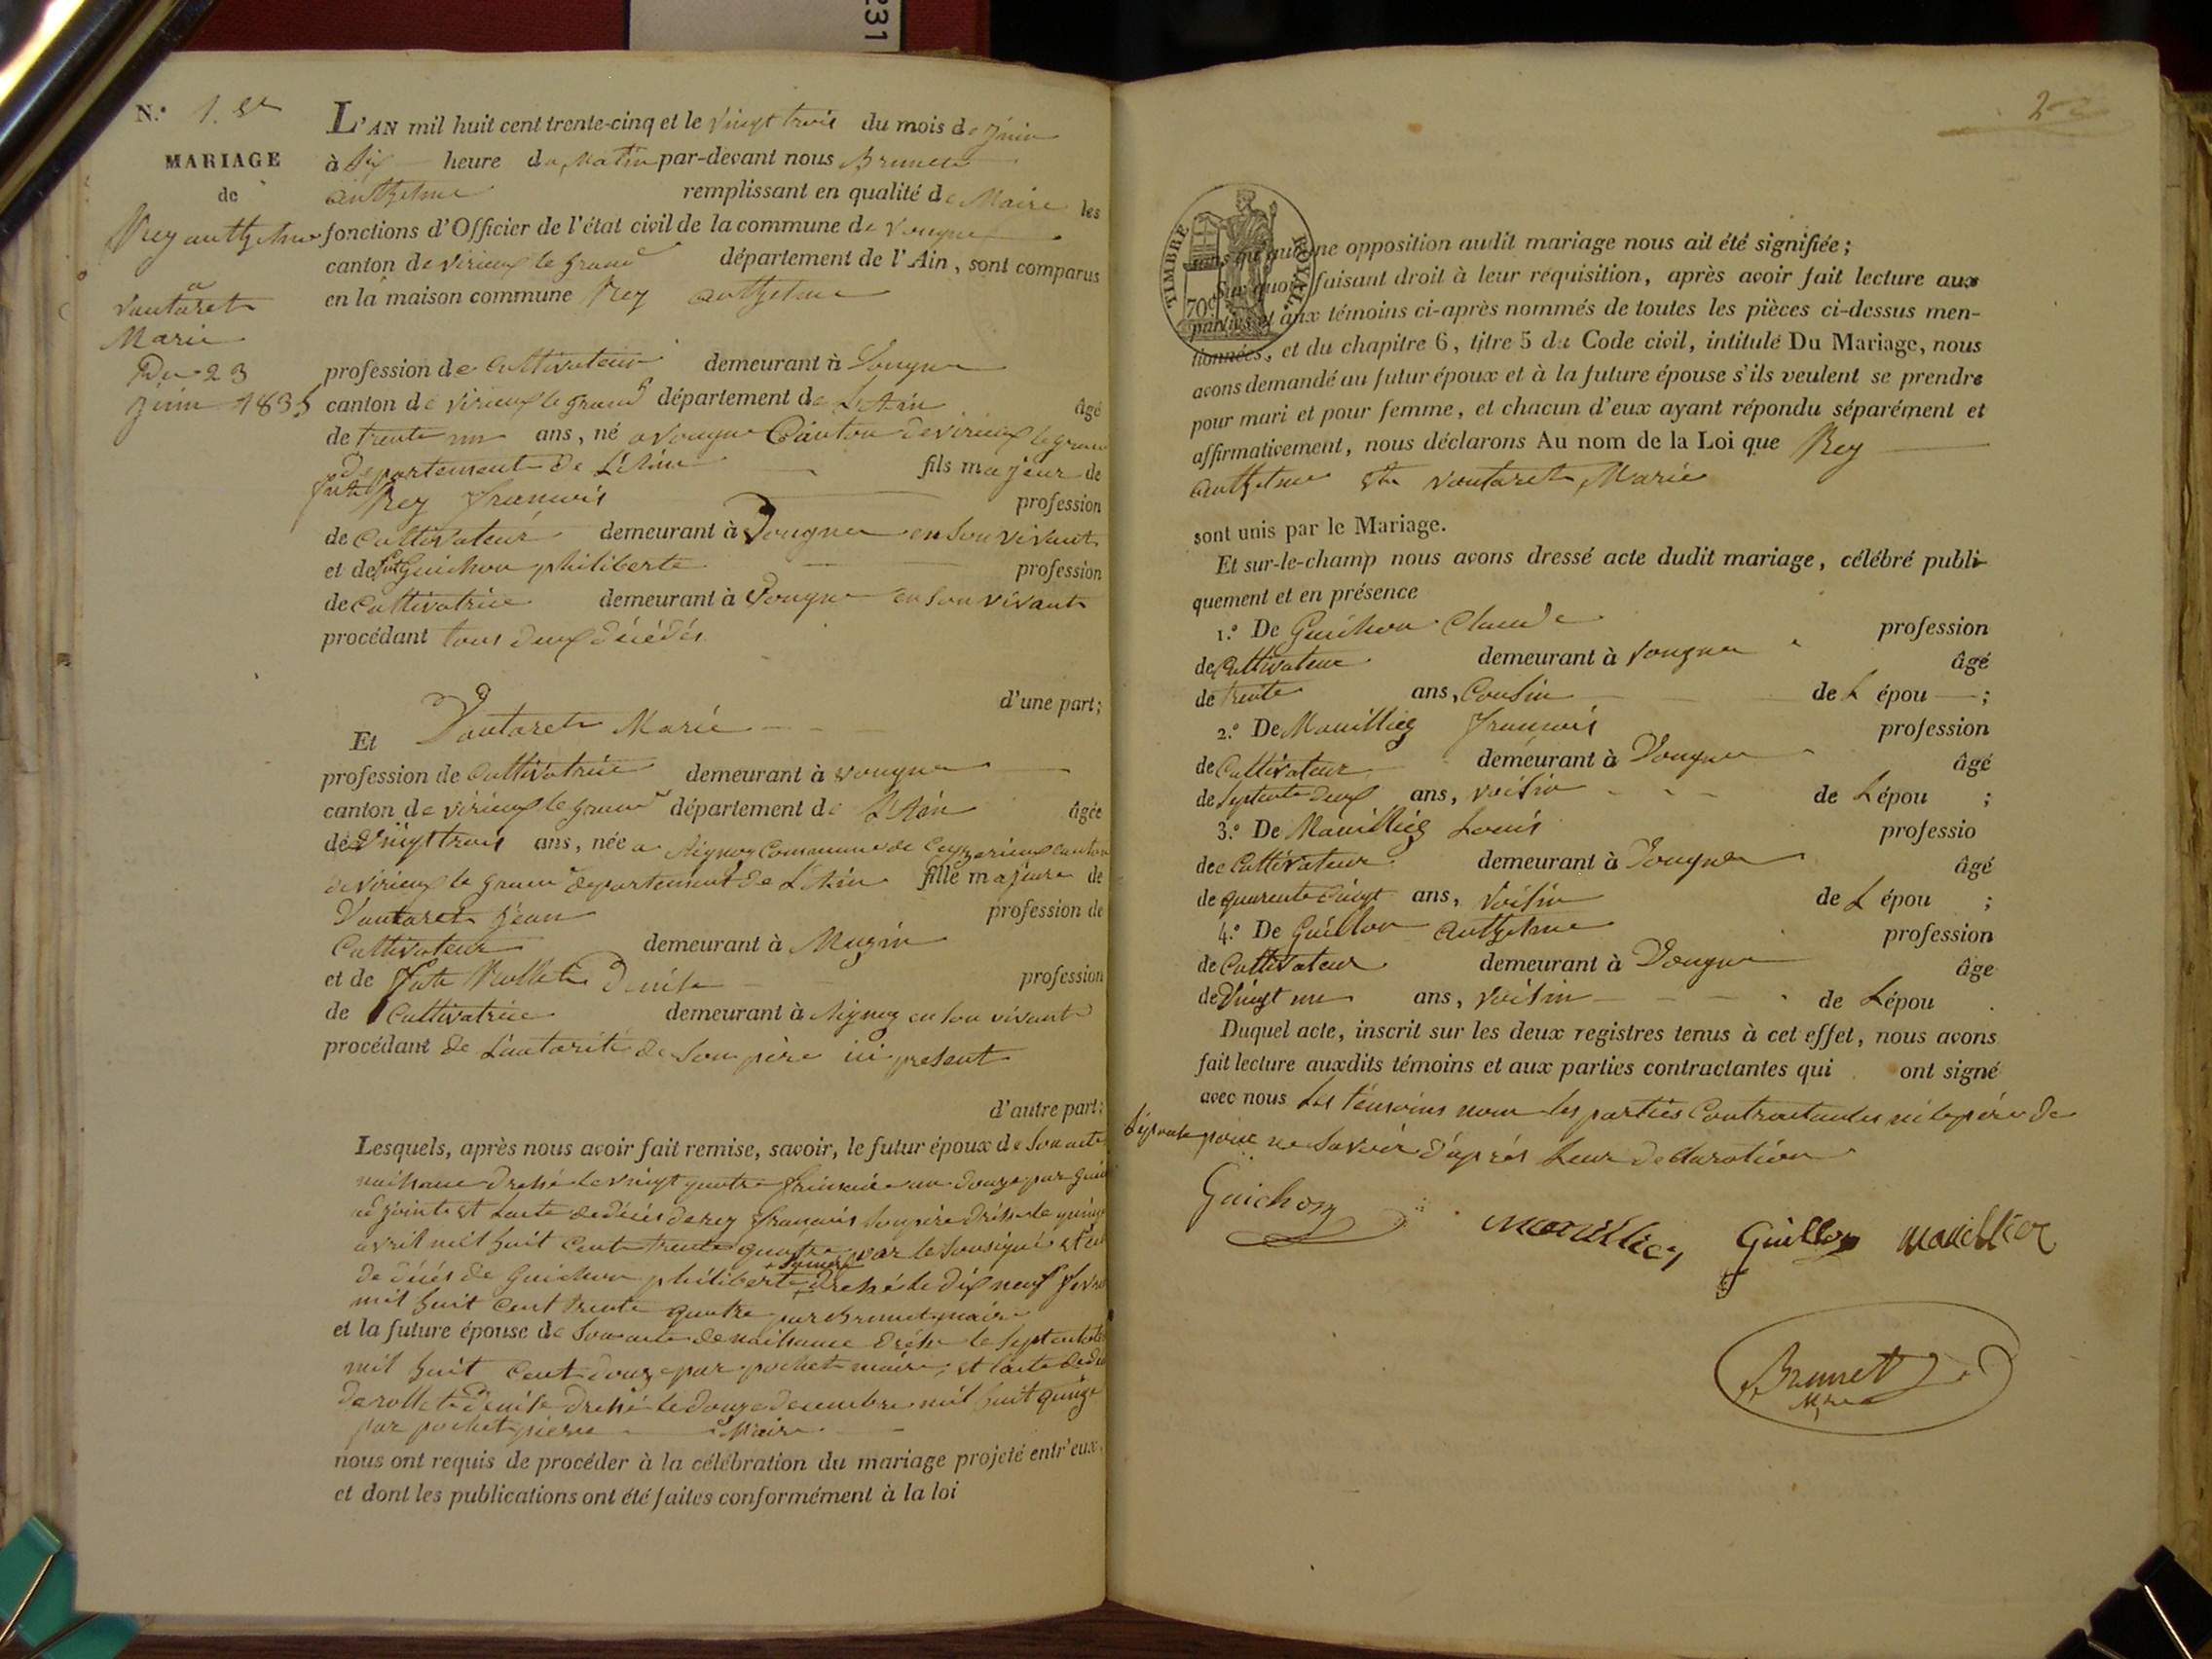 231
N.° 1.er
MARIAGE
de
Rey anthelme
a
Vautaret
Marie
Du 23
juin 1835
L'AN mil huit cent trente-cinq et le vingt trois du mois de juin
à heure du Matin par-devant nous Brunet
anthelme remplissant en qualité de Maire les
fonctions d'Officier de l'état civil de la commune de vongne
canton de virieux le grand département de l'Ain, sont comparus
en la maison commune Rey anthelme
profession de cultivateur demeurant à Vongne
canton de virieux le grand département de L'Ain âgé
de trente un ans, né a vongne Canton de virieux le grand
département de L'Ain fils majeur de
Rey francois profession
de cultivateur demeurant à Vongne en son vivant
et de Guichon philiberte profession
de cultivatrice demeurant à Vongne en son vivant
procédant tous deux décédés
d'une part;
Et Vautaret Marie
profession de cultivatrice demeurant à vongne
canton de virieux le grand département de L'Ain âgée
de vingt trois ans, née a Aignoz Commune de Ceyzerieux canton
de virieux le grand departement de L'Ain fille majeure de
Vautaret jean profession de
Cultivateur demeurant à Muzin
et de Rollet Denise profession
de Cultivatrice demeurant à Aignoz en son vivant
procédant de L'autorité de son père ici present
d'autre part;
Lesquels, après nous avoir fait remise, savoir, le futur époux de Son acte
naissance dressé le vingt quatre frimaire an douze par
adjoint et l'acte de décès de rey françois son père dressé le quinze
avril mil huit cent trente quatre par le sousigné et
de décès de Guichon philiberte dressé le dix neuf
mil huit cent trente quatre par Brunet maire
et la future épouse de Son acte de naissance dressé le sept
mil huit cent douze par pochet maire, et l'acte de
de rollet Denise dressé le douze decembre mil huit quinze
par pochet pierre Maire
nous ont requis de procéder à la célébration du mariage projeté entr'eux,
et dont les publications ont été faites conformément à la loi
2
TIMBRE ROYAL
70c
sans qu'aucune opposition audit mariage nous ait été signifiée;
Sur quoi, faisant droit à leur réquisition, après avoir fait lecture aux
parties et aux témoins ci-après nommés de toutes les pièces ci-dessus men-
tionnées, et du chapitre 6, titre 5 du Code civil, intitulé Du Mariage, nous
avons demandé au futur époux et à la future épouse s'ils veulent se prendre
pour mari et pour femme, et chacun d'eux ayant répondu séparément et
affirmativement, nous déclarons Au nom de la Loi que Rey
anthelme et vautaret Marie
sont unis par le Mariage.
Et sur-le-champ nous avons dressé acte dudit mariage, célébré publi-
quement et en présence
1.° De Guichon Claude profession
de cultivateur demeurant à vongne âgé
de trente ans, Cousin de L épou ;
2.° De Mouilliez francois profession
de Cultivateur demeurant à Vongne âgé
de septente deux ans, voisin de L épou ;
3.° De Mouilliez Louis professio
de Cultivateur demeurant à Vongne âgé
de quarente cinq ans, Voisin de L épou ;
4.° De Guillon anthelme profession
de Cultivateur demeurant à Vongne âgé
de vingt un ans, voisin de L épou
Duquel acte, inscrit sur les deux registres tenus à cet effet, nous avons
fait lecture auxdits témoins et aux parties contractantes qui ont signé
avec nous Les témoins non les parties Contractantes ni le père de
L'épouse pour ne savoir d'après Leur declaration
Guichon Mouilliez Guillon Mouilliez
Brunet
Mre